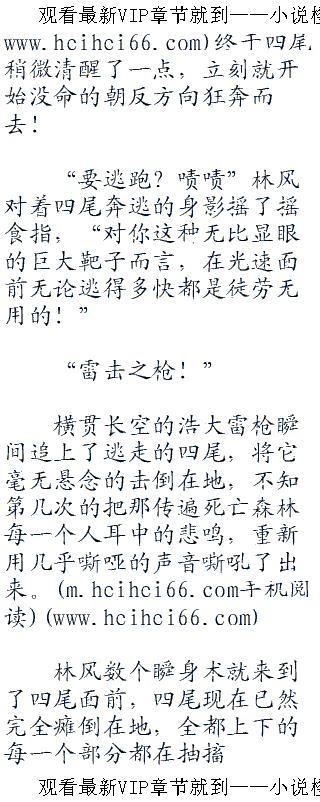 观看最新VIP章节就到——小说
www.hcihci66.com)终于四尾
稍微清醒了一点，立刻就开
始没命的朝反方向狂奔而
去！
“要逃跑？啧啧”林风
对着四尾奔逃的身影摇了摇
食指，“对你这种无比显眼
的巨大靶子而言，在光速面
前无论逃得多快都是徒劳无
用的！”
“雷击之枪！”
横贯长空的浩大雷枪瞬
间追上了逃走的四尾，将它
毫无悬念的击倒在地，不知
第几次的把那传遍死亡森林
每一个人耳中的悲鸣，重新
用几乎嘶哑的声音嘶吼了出
来。(m.hcihci66.com手机阅
读)(www.hcihci66.com)
林风数个瞬身术就来到
了四尾面前，四尾现在已然
完全瘫倒在地，全都上下的
每一个部分都在抽搐
观看最新VIP章节就到——小说